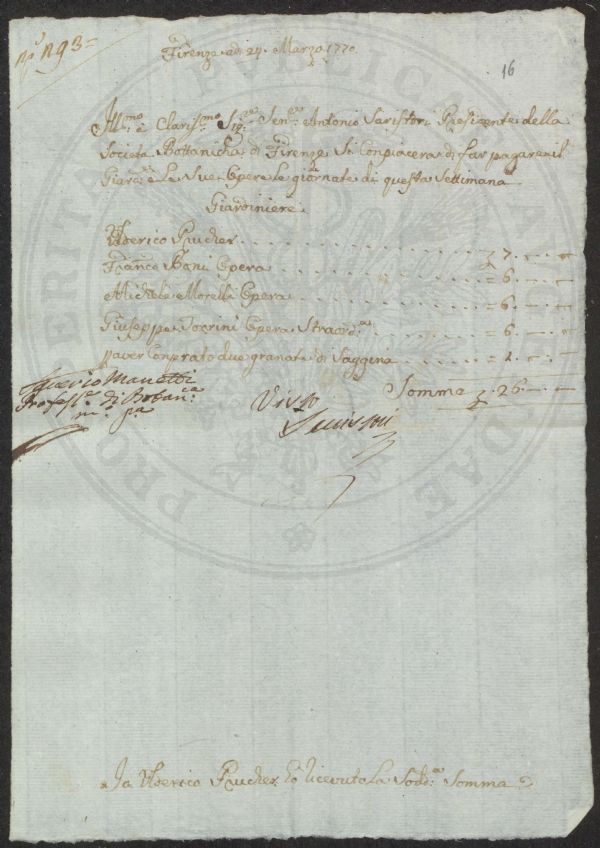 nº. 93=
Firenze adì 24. Marzo 1770
16
Ill:mo e Claris:mo Sig:re Sen:re Antonio Saristori Presidente della
Società Bottanicha di Firenze Si Conpiacera di far pagare il
Giard:re e Le Sue Opere le giornate di questa Settimana
Giardiniere
Ulderico Prucher = 7. — —
Franc:o Bani Opera = 6. — —
Michele Morelli Opera = 6. — —
Giuseppe Torrini Opera Straord:a = 6. — —
paver Conprato due granate di Saggina = 1. — —
Somma 26 — —
Saverio Manetti
Profess:e di Botan:ca
m:o p:a
Visto
Io Ulderico Prucher ho riceuto la Sodd:a Somma
PROSPERITATI PUBLICAE AUGENDAE